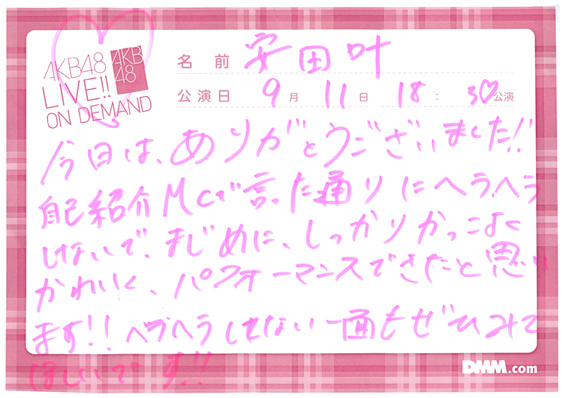 AKB48
LIVE!!
ON DEMAND
AKB
48
名前 安田叶
公演日 9月11日 18:30公演
今日は、ありがとうございました!!
自己紹介MCで言った通りにヘラヘラ
しないで、まじめに、しっかりかっこよく
かわいく、パフォーマンスできたと思い
ます!!ヘラヘラしてない一面もぜひみて
ほしいです!!
DMM.com